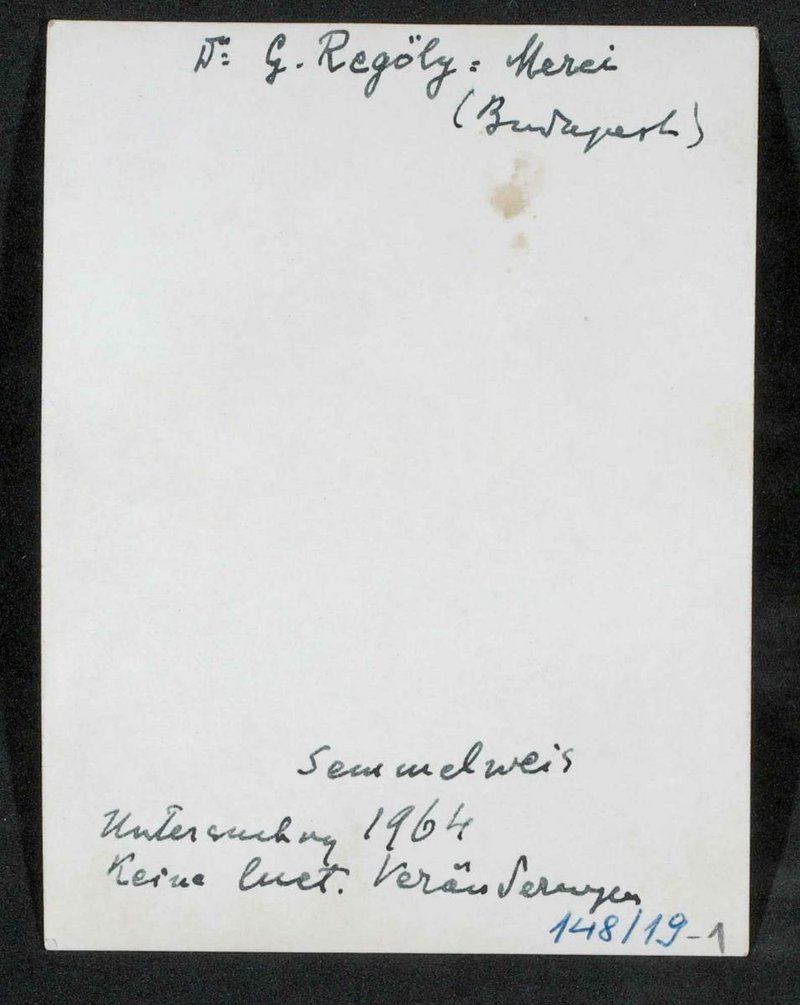 Dr: G. Regöly = Merei
(Budapest)
Semmelweis
Untersuchung 1964
Keine luet. Veränderungen
148/19-1